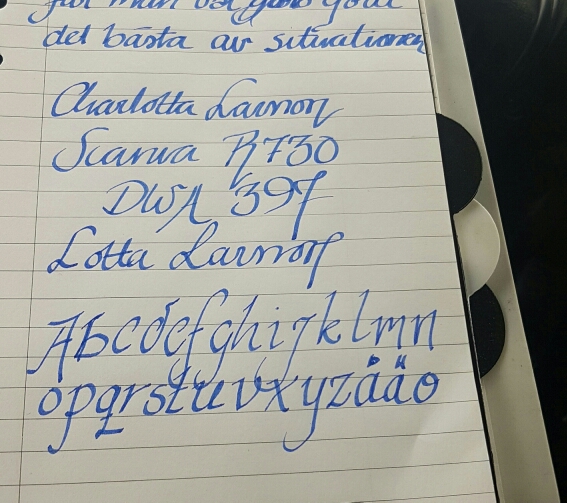 del bästa av situationen
Charlotta Larmon
Scania R730
DWA 397
Lotta Larmon
Abcdefghijklmn
opqrstuvxyzåäo